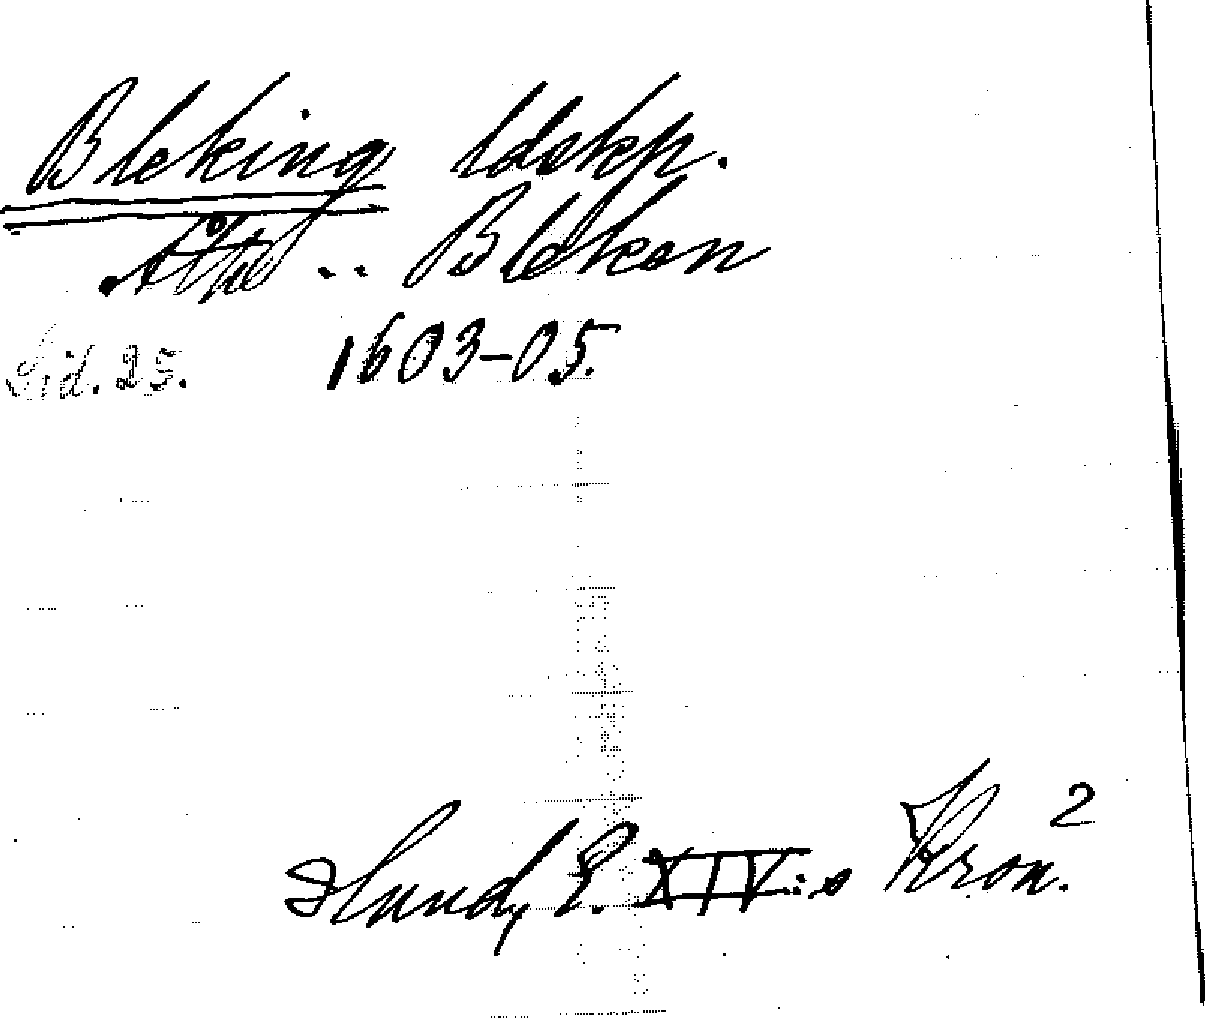 Bleking ldskp.
.. Bleken
Sid. 25. 1603-05.
Hund, E. XIV:s Krön. 2